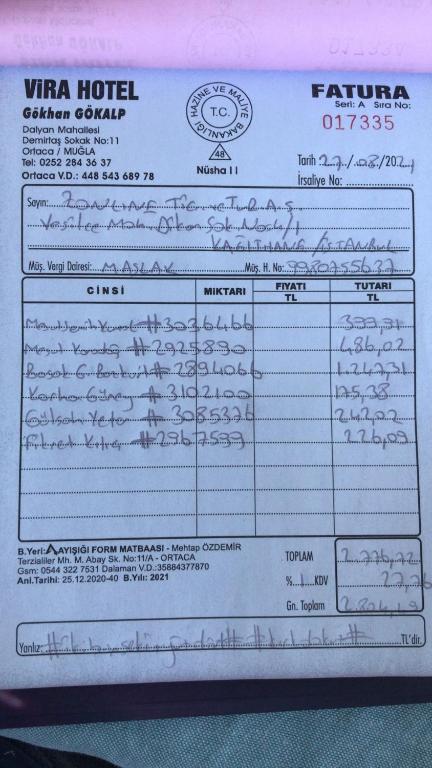 ViRA HOTEL
Gökhan GÖKALP
Dalyan Mahallesi
Demirtaş Sokak No:11
Ortaca / MUĞLA
Tel: 0252 284 36 37
Ortaca V.D.: 448 543 689 78
HAZİNE VE MALİYE BAKANLIĞI
T.C.
48
Nüsha II
FATURA
Seri: A Sıra No:
017335
Tarih 27/08/2021
İrsaliye No:
Sayın: ZONLINE Tic ve TUR A.Ş.
Yeşilce Mah.
KAĞITHANE/İSTANBUL
Müş. Vergi Dairesi: MASLAK Müş. H. No: 9980755637
CİNSİ MİKTARI FİYATI TL TUTARI TL
#3036466 399,91
#2925890 486,02
#2894066 1.247,31
#3102100 175,38
#3085376 242,02
#2967599 226,09
B.Yeri: AYIŞIĞI FORM MATBAASI - Mehtap ÖZDEMİR
Terzialiler Mh. M. Abay Sk. No:11/A - ORTACA
Gsm: 0544 322 7531 Dalaman V.D.:35884377870
Anl.Tarihi: 25.12.2020-40 B.Yılı: 2021
TOPLAM 2.776,72
% 1 KDV 27,76
Gn. Toplam
Yanlız: TL'dir.